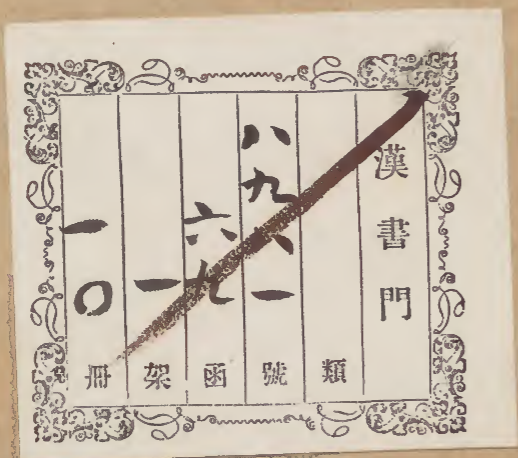 漢書門
類
八九六一號
六九函
一架
一〇冊